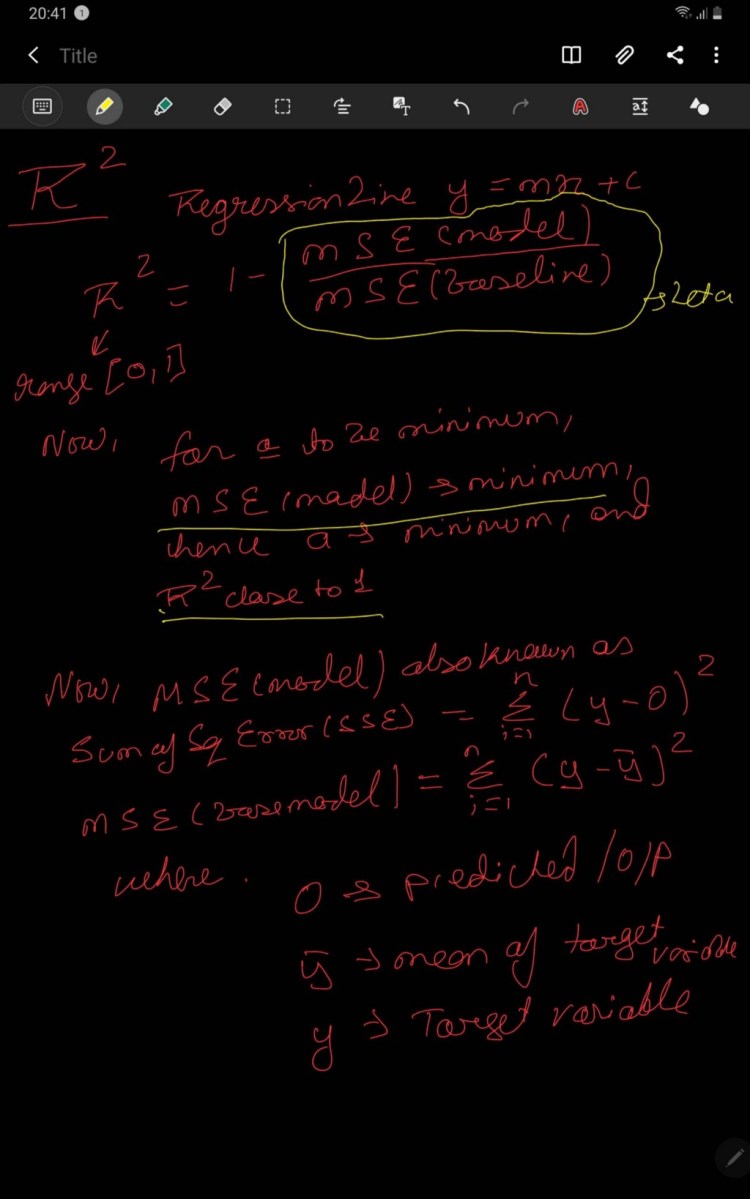 20:41 1
Title
R²
Regression Line y = mx + c
R² = 1 - MSE (model) / MSE (baseline) → Let a
range [0, 1]
Now, for a to be minimum,
MSE (model) → minimum,
hence a → minimum, and
R² close to 1
Now, MSE (model) also known as
Sum of Sq Error (SSE) = n Σ i=1 (y - O)²
MSE (base model) = n Σ i=1 (y - ȳ)²
where.
O → predicted / O/P
ȳ → mean of target variable
y → Target variable